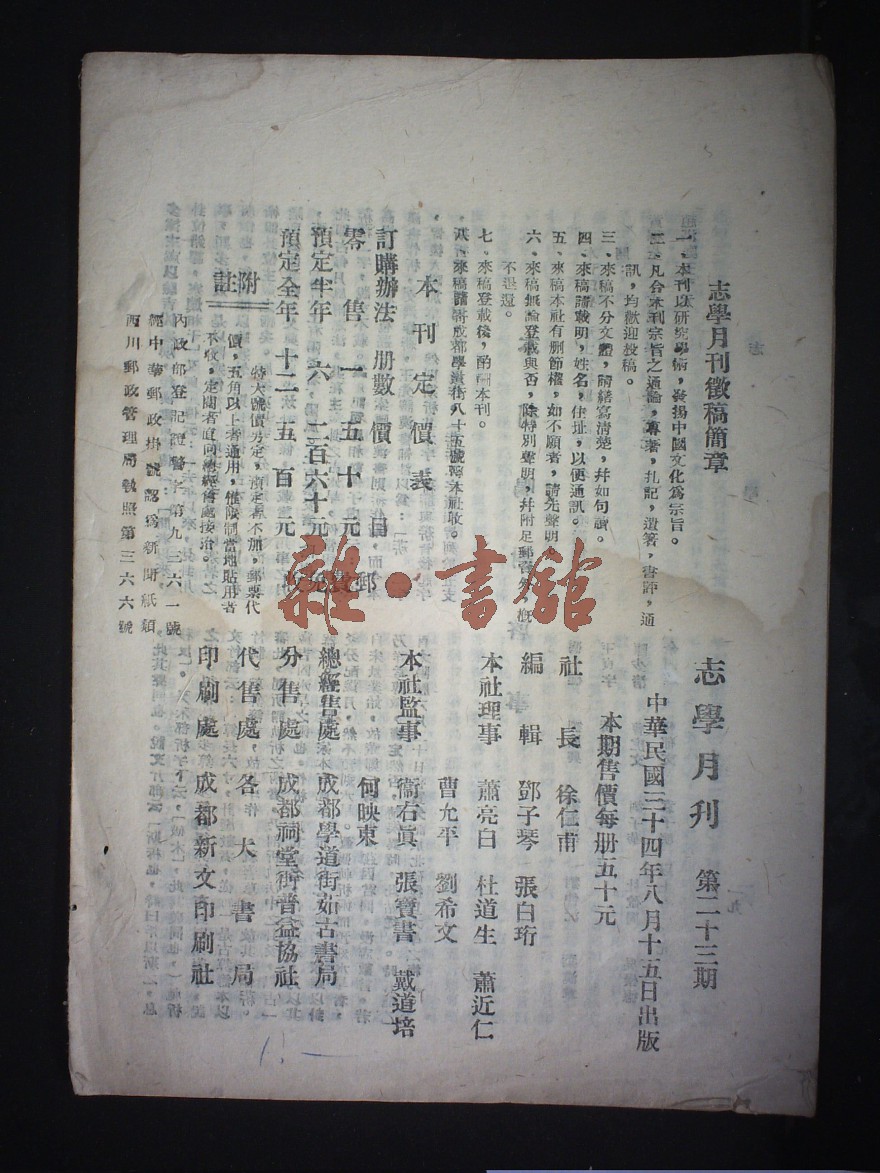 志學月刊徵稿簡章
一、本刊以研究學術，發揚中國文化爲宗旨。
二、凡合本刊宗旨之通論，專著，扎記，遺著，書評，通
訊，均歡迎投稿。
三、來稿不分文體，請繕寫清楚，幷如句讀。
四、來稿請載明，姓名，住址，以便通訊。
五、來稿本社有删節權，如不願者，請先聲明。
六、來稿無論登載與否，除特別聲明，幷附足郵資外，概
不退還。
七、來稿登載後，酌酬本刊。
八、來稿請寄成都學道街八十五號轉本社收。
本刊定價表
訂購辦法 册數 價目 郵費
零售 一 五十元
預定半年 六 二百六十元 免
預定全年 十二 五百元 收
附註
特大號價另定，預定不加，郵票代
價，五角以上者通用，僅限制當地貼用者
不收，定閱者直向總經售處接洽。
內政部登記證警字第九三六一號
經中華郵政掛號認爲新聞紙類
西川郵政管理局執照第三六六號
志學月刊 第二十三期
中華民國三十四年八月十五日出版
本期售價每册五十元
社長 徐仁甫
編輯 鄧子琴 張白珩
本社理事 蕭亮白 杜道生 蕭近仁
曹允平 劉希文
本社監事 衞右眞 張寶書 戴道培
何映東
總經售處 成都學道街茹古書局
分售處 成都祠堂街普益協社
代售處 各大書局
印刷處 成都新文印刷社
雜·書館